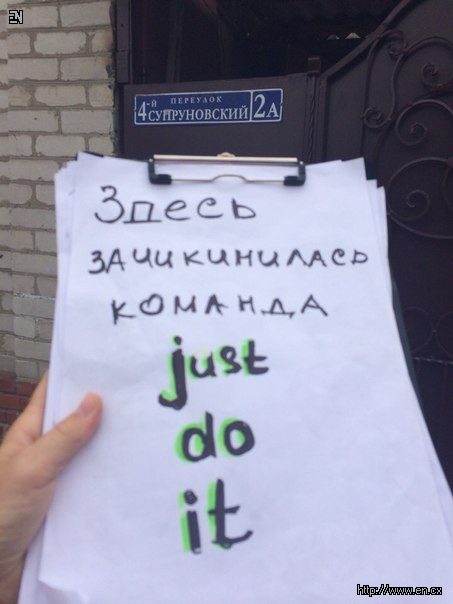 EN
4-й ПЕРЕУЛОК СУПРУНОВСКИЙ 2А
Здесь
зачикинилась
команда
just
do
it
http://www.en.cx